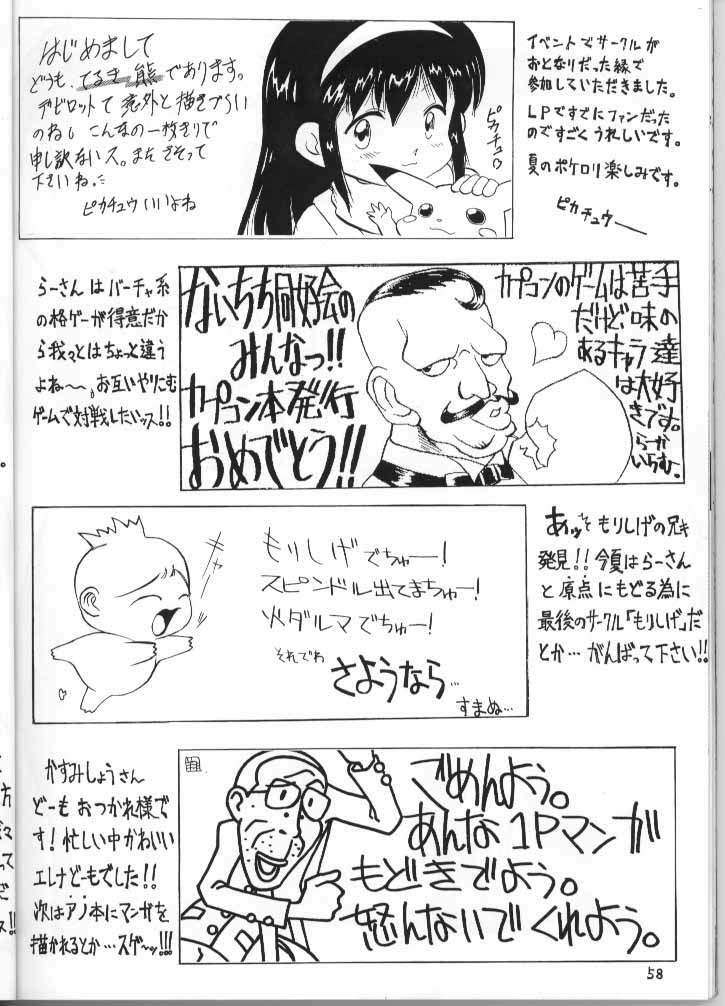 はじめまして
どうも、てるき熊であります。
デビロットって意外と描きづらい
のねし こんなの一枚きりで
申し訳ないス。また さそって
下さいね。
ピカチュウいいよね
ピカチュウ
イベントでサークルが
おとなりだった縁で
参加していただきました。
LPですでにファンだった
のですごくうれしいです。
夏のポケロリ楽しみです。
ピカチュウー
らーさんはバーチャ系
の格ゲーが得意だか
ら我々とはちょっと違う
よね〜。お互いやりこむ
ゲームで対戦したいッス!!
ないちち同好会の
みんなっ!!
カプコン本発行
おめでとう!!
カプコンのゲームは苦手
だけど味の
あるキャラ達
は大好
きです。
らーか
いらむ。
もりしげでちゅー!
スピンドル出てまちゅー!
火ダルマでちゅー!
それでわ
さようなら…
すまぬ…
あッ、そ もりしげの兄き
発見!! 今夏はらーさん
と原点にもどる為に
最後のサークル「もりしげ」だ
とか…がんばって下さい!!
かすみしょうさん
どーもおつかれ様で
す! 忙しい中かわいい
エレナどもでした!!
次はアノ本にマンガを
描かれるとか…スゲ〜ッ!!!
ごめんよう。
あんな1Pマンガ
もどきでよう。
怒んないでくれよう。
58